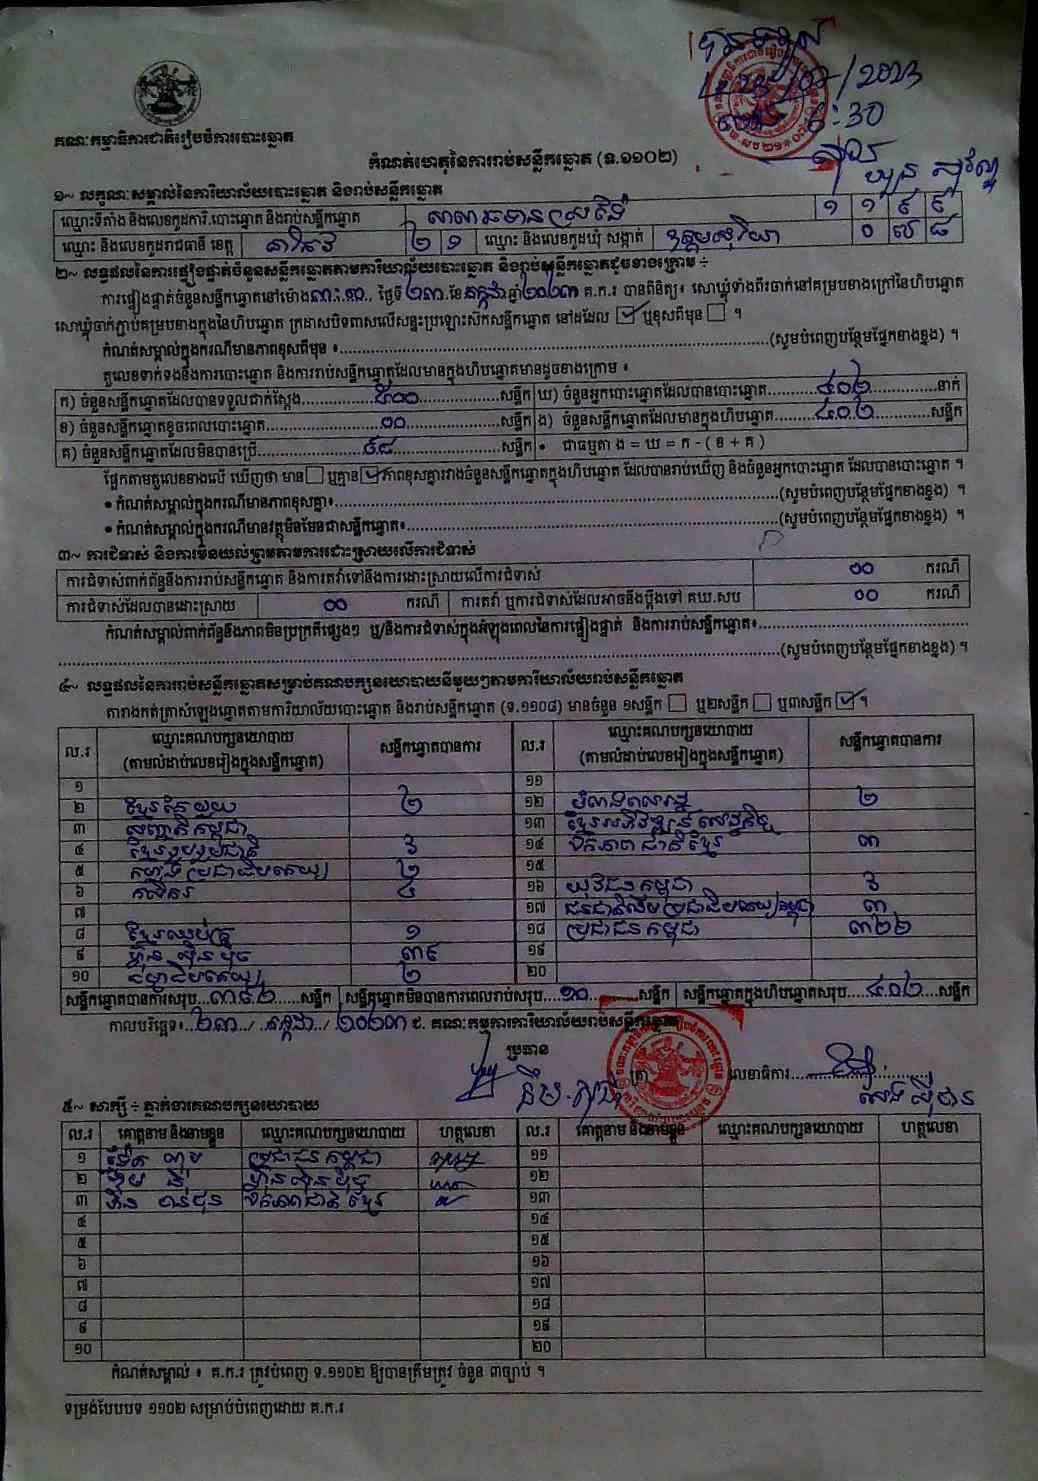 គណៈកម្មាធិការជាតិរៀបចំការបោះឆ្នោត
23/07/2023
6:30
កំណត់ហេតុនៃការរាប់សន្លឹកឆ្នោត (ទ.១១០២)
១~ លក្ខណៈសម្គាល់នៃការិយាល័យបោះឆ្នោត និងរាប់សន្លឹកឆ្នោត
ឈ្មោះទីតាំង និងលេខកូដការិ.បោះឆ្នោត និងរាប់សន្លឹកឆ្នោត ១ ១ ៩ ៩
ឈ្មោះ និងលេខកូដរាជធានី ខេត្ត តាកែវ ២ ១ ឈ្មោះ និងលេខកូដឃុំ សង្កាត់ ឧត្តមសុរិយា ០ ៧ ៨
២~ លទ្ធផលនៃការផ្ទៀងផ្ទាត់ចំនួនសន្លឹកឆ្នោតតាមការិយាល័យបោះឆ្នោត និងរាប់សន្លឹកឆ្នោតដូចខាងក្រោម ៖
ការផ្ទៀងផ្ទាត់ចំនួនសន្លឹកឆ្នោតនៅម៉ោង៣:១០, ថ្ងៃទី២៣.ខែកក្កដាឆ្នាំ២០២៣ គ.ក.រ បានពិនិត្យ៖ សោឃ្លុំទាំងពីរចាក់នៅគម្របខាងក្រៅនៃហិបឆ្នោត
សោឃ្លុំចាក់ភ្ជាប់គម្របខាងក្នុងនៃហិបឆ្នោត ក្រដាសបិទពាសលើសន្ទះប្រឡោះស៊កសន្លឹកឆ្នោត នៅដដែល ☑ ឬខុសពីមុន ☐ ។
កំណត់សម្គាល់ក្នុងករណីមានភាពខុសពីមុន ៖..........(សូមបំពេញបន្ថែមផ្នែកខាងខ្នង) ។
តួលេខទាក់ទងនឹងការបោះឆ្នោត និងការរាប់សន្លឹកឆ្នោតដែលមានក្នុងហិបឆ្នោតមានដូចខាងក្រោម ៖
ក) ចំនួនសន្លឹកឆ្នោតដែលបានទទួលជាក់ស្តែង.....៥០០.....សន្លឹក ឃ) ចំនួនអ្នកបោះឆ្នោតដែលបានបោះឆ្នោត.....៤០២.....នាក់
ខ) ចំនួនសន្លឹកឆ្នោតខូចពេលបោះឆ្នោត.....០០.....សន្លឹក ង) ចំនួនសន្លឹកឆ្នោតដែលមានក្នុងហិបឆ្នោត.....៤០២.....សន្លឹក
គ) ចំនួនសន្លឹកឆ្នោតដែលមិនបានប្រើ.....៩៨.....សន្លឹក • ជាធម្មតា ង = ឃ = ក - ( ខ + គ )
ផ្អែកតាមតួលេខខាងលើ ឃើញថា មាន ☐ ឬគ្មាន ☑ ភាពខុសគ្នារវាងចំនួនសន្លឹកឆ្នោតក្នុងហិបឆ្នោត ដែលបានរាប់ឃើញ និងចំនួនអ្នកបោះឆ្នោត ដែលបានបោះឆ្នោត ។
• កំណត់សម្គាល់ក្នុងករណីមានភាពខុសគ្នា៖..........(សូមបំពេញបន្ថែមផ្នែកខាងខ្នង) ។
• កំណត់សម្គាល់ក្នុងករណីមានវត្ថុមិនមែនជាសន្លឹកឆ្នោត៖..........(សូមបំពេញបន្ថែមផ្នែកខាងខ្នង) ។
៣~ ការជំទាស់ និងការមិនយល់ព្រមតាមការដោះស្រាយលើការជំទាស់
ការជំទាស់ពាក់ព័ន្ធនឹងការរាប់សន្លឹកឆ្នោត និងការតវ៉ាទៅនឹងការដោះស្រាយលើការជំទាស់ ០០ ករណី
ការជំទាស់ដែលបានដោះស្រាយ ០០ ករណី ការតវ៉ា ឬការជំទាស់ដែលអាចនឹងប្តឹងទៅ គឃ.សប ០០ ករណី
កំណត់សម្គាល់ពាក់ព័ន្ធនឹងភាពមិនប្រក្រតីផ្សេងៗ ឬ/និងការជំទាស់ក្នុងអំឡុងពេលនៃការផ្ទៀងផ្ទាត់ និងការរាប់សន្លឹកឆ្នោត៖..........
..........(សូមបំពេញបន្ថែមផ្នែកខាងខ្នង) ។
៤~ លទ្ធផលនៃការរាប់សន្លឹកឆ្នោតសម្រាប់គណបក្សនយោបាយនីមួយៗតាមការិយាល័យរាប់សន្លឹកឆ្នោត
តារាងកត់ត្រាសំឡេងឆ្នោតតាមការិយាល័យបោះឆ្នោត និងរាប់សន្លឹកឆ្នោត (ទ.១១០៨) មានចំនួន ១សន្លឹក ☐ ឬ២សន្លឹក ☐ ឬ៣សន្លឹក ☑ ។
ល.រ ឈ្មោះគណបក្សនយោបាយ (តាមលំដាប់លេខរៀងក្នុងសន្លឹកឆ្នោត) សន្លឹកឆ្នោតបានការ ល.រ ឈ្មោះគណបក្សនយោបាយ (តាមលំដាប់លេខរៀងក្នុងសន្លឹកឆ្នោត) សន្លឹកឆ្នោតបានការ
១ ១១
២ ខ្មែរតែមួយ ២ ១២ ២
៣ ១៣ ខ្មែរអភិវឌ្ឍន៍សេដ្ឋកិច្ច
៤ ខ្មែររួបរួមជាតិ 3 ១៤ ឯកភាពជាតិខ្មែរ ៣
៥ ២ ១៥
៦ កសិករ ៤ ១៦ យុវជនកម្ពុជា 3
៧ ១៧ ៣
៨ ១ ១៨ ប្រជាជនកម្ពុជា ៣២២
៩ ហ្វ៊ុនស៊ិនប៉ិច ៣៩ ១៩
១០ ២ ២០
សន្លឹកឆ្នោតបានការសរុប...៣៩២...សន្លឹក សន្លឹកឆ្នោតមិនបានការពេលរាប់សរុប...១០...សន្លឹក សន្លឹកឆ្នោតក្នុងហិបឆ្នោតសរុប...៤០២...សន្លឹក
កាលបរិច្ឆេទ៖..២៣../..កក្កដា../២០២៣ ជ. គណៈកម្មការការិយាល័យរាប់សន្លឹកឆ្នោត
ប្រធាន
ត្រា លេខាធិការ
៥~ សាក្សី ÷ ភ្នាក់ងារគណបក្សនយោបាយ
ល.រ គោត្តនាម និងនាមខ្លួន ឈ្មោះគណបក្សនយោបាយ ហត្ថលេខា ល.រ គោត្តនាម និងនាមខ្លួន ឈ្មោះគណបក្សនយោបាយ ហត្ថលេខា
១ ប្រជាជនកម្ពុជា ១១
២ ហ្វ៊ុនស៊ិនប៉ិច ១២
៣ ឯកភាពជាតិខ្មែរ ១៣
៤ ១៤
៥ ១៥
៦ ១៦
៧ ១៧
៨ ១៨
៩ ១៩
១០ ២០
កំណត់សម្គាល់ ៖ គ.ក.រ ត្រូវបំពេញ ទ.១១០២ ឱ្យបានត្រឹមត្រូវ ចំនួន ៣ច្បាប់ ។
ទម្រង់បែបបទ ១១០២ សម្រាប់បំពេញដោយ គ.ក.រ